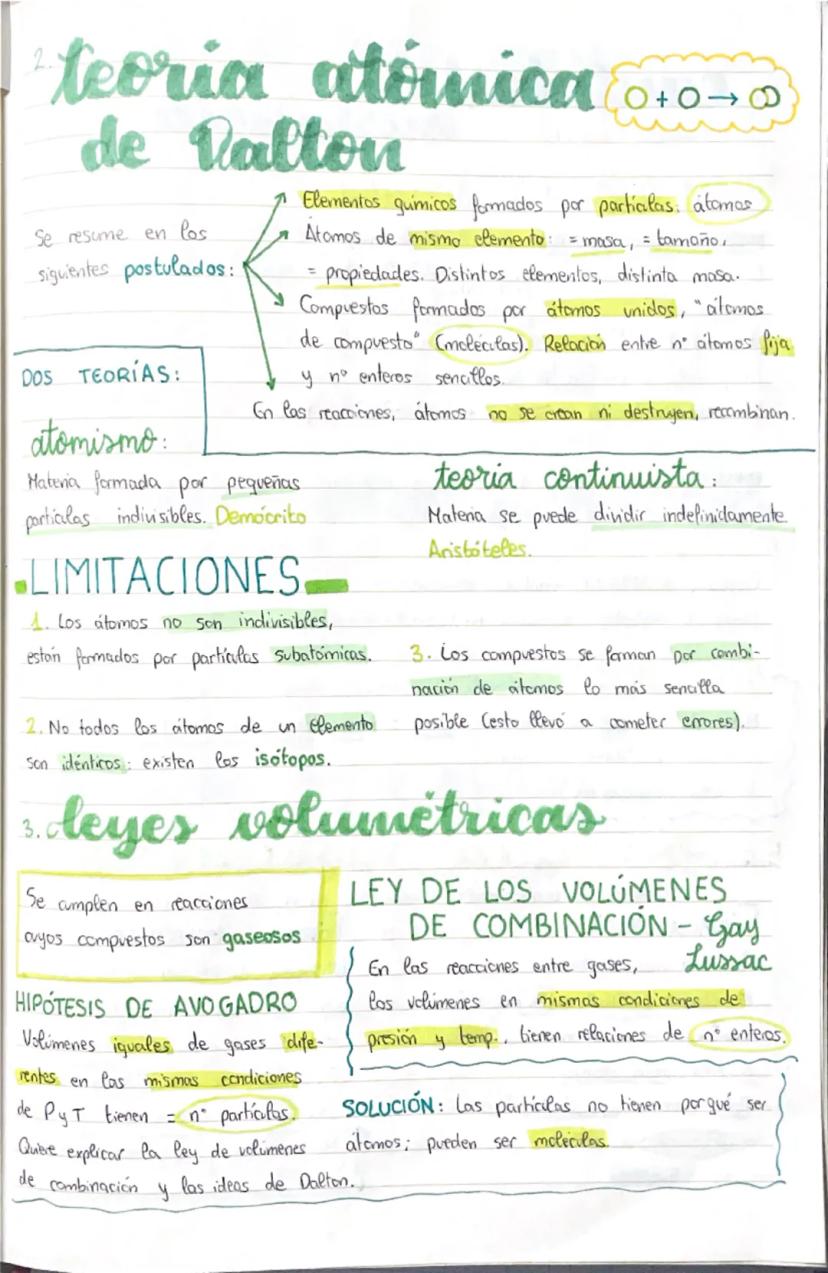 2. teoría atómica
de Dalton
O + O → OO
Se resume en los
siguientes postulados:
Elementos químicos formados por partículas: átomos
Átomos de mismo elemento: = masa, = tamaño,
= propiedades. Distintos elementos, distinta masa.
Compuestos formados por átomos unidos, "átomos
de compuesto" (moléculas). Relación entre nº átomos fija
y nº enteros sencillos.
En las reacciones, átomos no se crean ni destruyen, recombinan.
DOS TEORÍAS:
atomismo:
Materia formada por pequeñas
partículas indivisibles. Demócrito
teoría continuista:
Materia se puede dividir indefinidamente
Aristóteles.
LIMITACIONES
1. Los átomos no son indivisibles,
están formados por partículas subatómicas.
2. No todos los átomos de un elemento
son idénticos: existen los isótopos.
3. Los compuestos se forman por combi-
nación de átomos lo más sencilla
posible (esto llevó a cometer errores).
3. leyes volumétricas
Se cumplen en reacciones
cuyos compuestos son gaseosos
HIPÓTESIS DE AVOGADRO
Volúmenes iguales de gases dife-
rentes en las mismas condiciones
de P y T tienen = nº partículas.
Quiere explicar la ley de volúmenes
de combinación y las ideas de Dalton.
LEY DE LOS VOLÚMENES
DE COMBINACIÓN - Gay
Lussac
En las reacciones entre gases,
los volúmenes en mismas condiciones de
presión y temp., tienen relaciones de nº enteros.
SOLUCIÓN: Las partículas no tienen porqué ser
átomos; pueden ser moléculas.